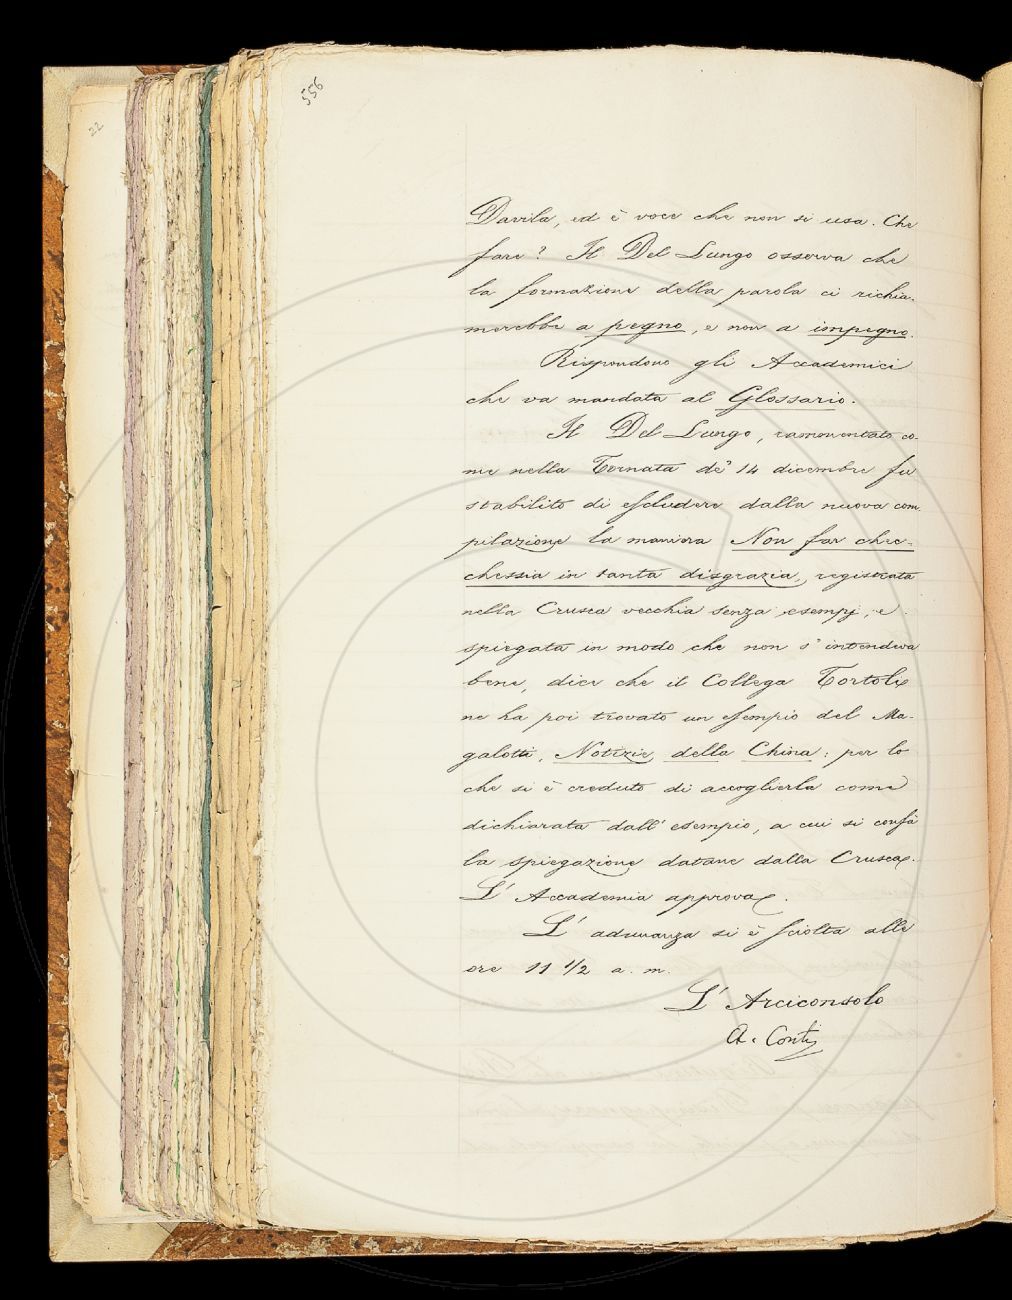 22
556
Davila, ed è voce che non si usa. Che
fare? Il Del Lungo osserva che
la formazione della parola ci richia-
merebbe a pegno, e non a impegno.
Rispondono gli Accademici
che va mandata al Glossario.
Il Del Lungo, rammentato co-
me nella Tornata de' 14 dicembre fu
stabilito di escludere dalla nuova com-
pilazione la maniera Non far chec-
chessia in tanta disgrazia, registrata
nella Crusca vecchia senza esempj, e
spiegata in modo che non s'intendeva
bene, dice che il Collega Tortoli
ne ha poi trovato un esempio del Ma-
galotti, Notizie della China: per lo
che si è creduto di accoglierla come
dichiarata dall'esempio, a cui si confà
la spiegazione datane dalla Crusca.
L'Accademia approva.
L'adunanza si è sciolta alle
ore 11 1/2 a. m.
L'Arciconsolo
A. Conti